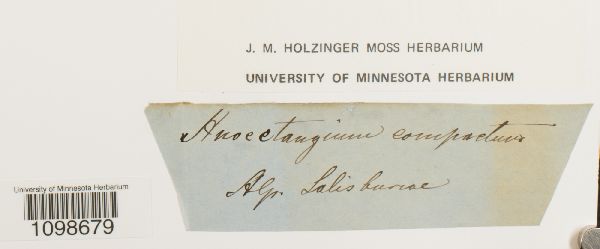 J. M. HOLZINGER MOSS HERBARIUM
UNIVERSITY OF MINNESOTA HERBARIUM
Anoectangium compactum
Alp. Salisburiae
University of Minnesota Herbarium
1098679